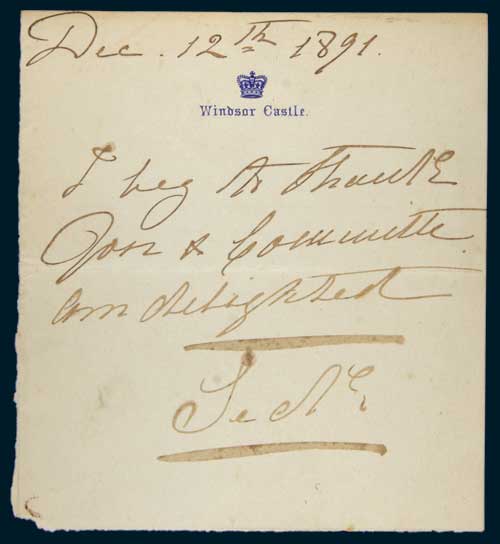 Dec. 12th 1891.
Windsor Castle.
I beg to thank
You & Committe.
am delighted